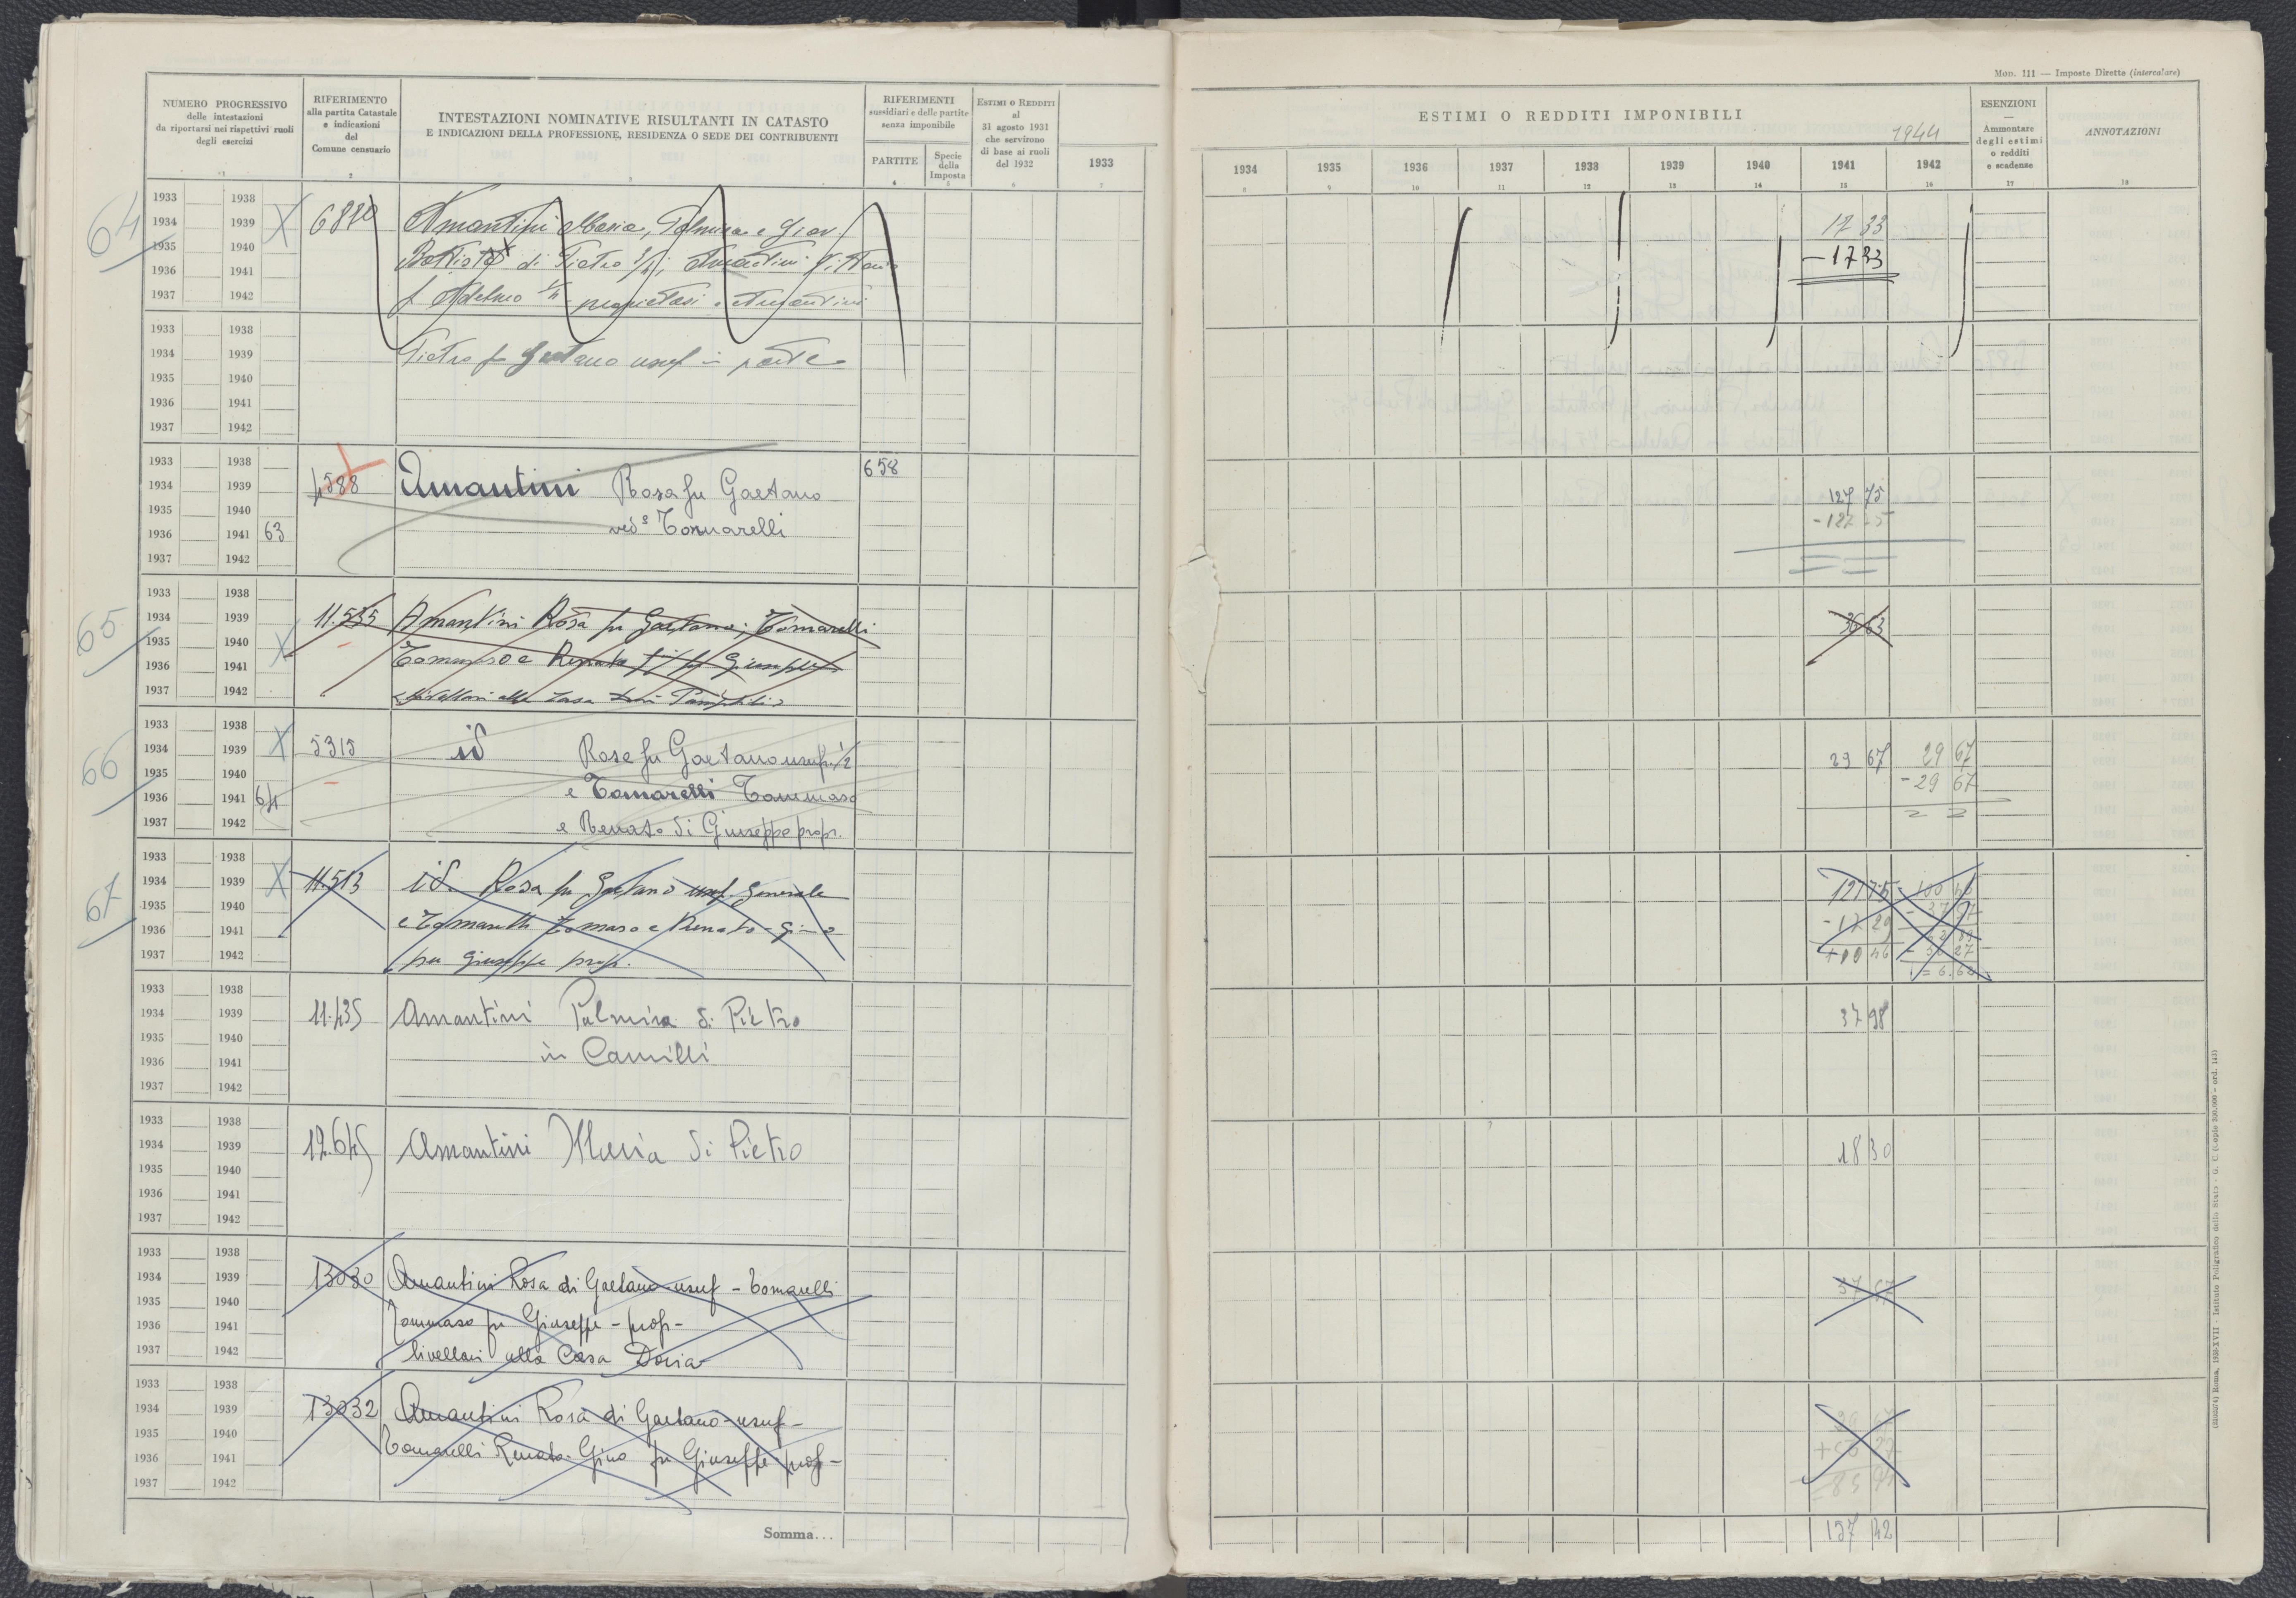 Mod. III — Imposte Dirette (intercalare)
NUMERO PROGRESSIVO
delle intestazioni
da riportarsi nei rispettivi ruoli
degli esercizi
1
RIFERIMENTO
alla partita Catastale
e indicazioni
del
Comune censuario
2
INTESTAZIONI NOMINATIVE RISULTANTI IN CATASTO
E INDICAZIONI DELLA PROFESSIONE, RESIDENZA O SEDE DEI CONTRIBUENTI
3
RIFERIMENTI
sussidiari e delle partite
senza imponibile
PARTITE
4
Specie
della
Imposta
5
Estimi o Redditi
al
31 agosto 1931
che servirono
di base ai ruoli
del 1932
6
1933
7
ESTIMI O REDDITI IMPONIBILI
1944
1934 1935 1936 1937 1938 1939 1940 1941 1942
8 9 10 11 12 13 14 15 16
ESENZIONI
—
Ammontare
degli estimi
o redditi
e scadenze
17
ANNOTAZIONI
18
64
1933 1938
1934 1939 X
1935 1940
1936 1941
1937 1942
Amantini Maria, Palmira e Giov.
Battista di Pietro
17 33
- 17 33
1933 1938
1934 1939
1935 1940
1936 1941
1937 1942
Pietro fu Gaetano usuf in parte
1933 1938
1934 1939
1935 1940
1936 1941 63
1937 1942
4588 Amantini Rosa fu Gaetano
ved Tomarelli
658
127 75
65
1933 1938
1934 1939
1935 1940 X
1936 1941
1937 1942
11.535 Amantini Rosa fu Gaetano; Tomarelli
Tommaso e Renato
36 63
66
1933 1938
1934 1939 X
1935 1940
1936 1941 64
1937 1942
5315 id Rosa fu Gaetano usuf. 1/2
e Tomarelli Tommaso
e Renato di Giuseppe propr.
29 67 29 67
- 29 67
67
1933 1938
1934 1939 X
1935 1940
1936 1941
1937 1942
11.513 id. Rosa fu Gaetano usuf. generale
e Tomarelli Tomaso e Renato - Gino
fu Giuseppe prop.
- 17 29
1933 1938
1934 1939
1935 1940
1936 1941
1937 1942
11.435 Amantini Palmira di Pietro
in Camilli
37 98
1933 1938
1934 1939
1935 1940
1936 1941
1937 1942
12.645 Amantini Maria di Pietro
18 30
1933 1938
1934 1939
1935 1940
1936 1941
1937 1942
13030 Amantini Rosa di Gaetano usuf - Tomarelli
Tommaso fu Giuseppe - prop -
livellari alla Casa Doria
37 67
1933 1938
1934 1939
1935 1940
1936 1941
1937 1942
13032 Amantini Rosa di Gaetano - usuf -
Tomarelli Renato - Gino fu Giuseppe prop -
Somma...
137 42